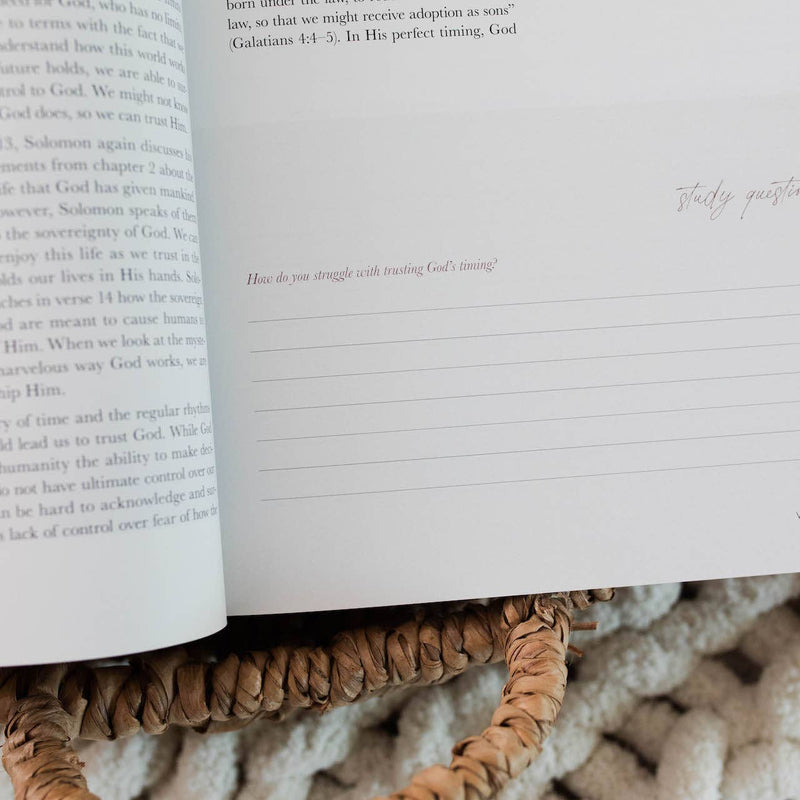 for God, who has no limits
to terms with the fact that we
understand how this world works
future holds, we are able to sur-
control to God. We might not know
God does, so we can trust Him.
13, Solomon again discusses his
ments from chapter 2 about the
life that God has given mankind
owever, Solomon speaks of them
the sovereignty of God. We can
enjoy this life as we trust in the
olds our lives in His hands. Solo-
ches in verse 14 how the sovereign
are meant to cause humans
Him. When we look at the myste-
marvelous way God works, we are
ship Him.
ry of time and the regular rhythms
ld lead us to trust God. While God
humanity the ability to make deci-
o not have ultimate control over our
n be hard to acknowledge and sur-
lack of control over fear of how the
born under the law, to
law, so that we might receive adoption as sons”
(Galatians 4:4–5). In His perfect timing, God
study questi
How do you struggle with trusting God’s timing?